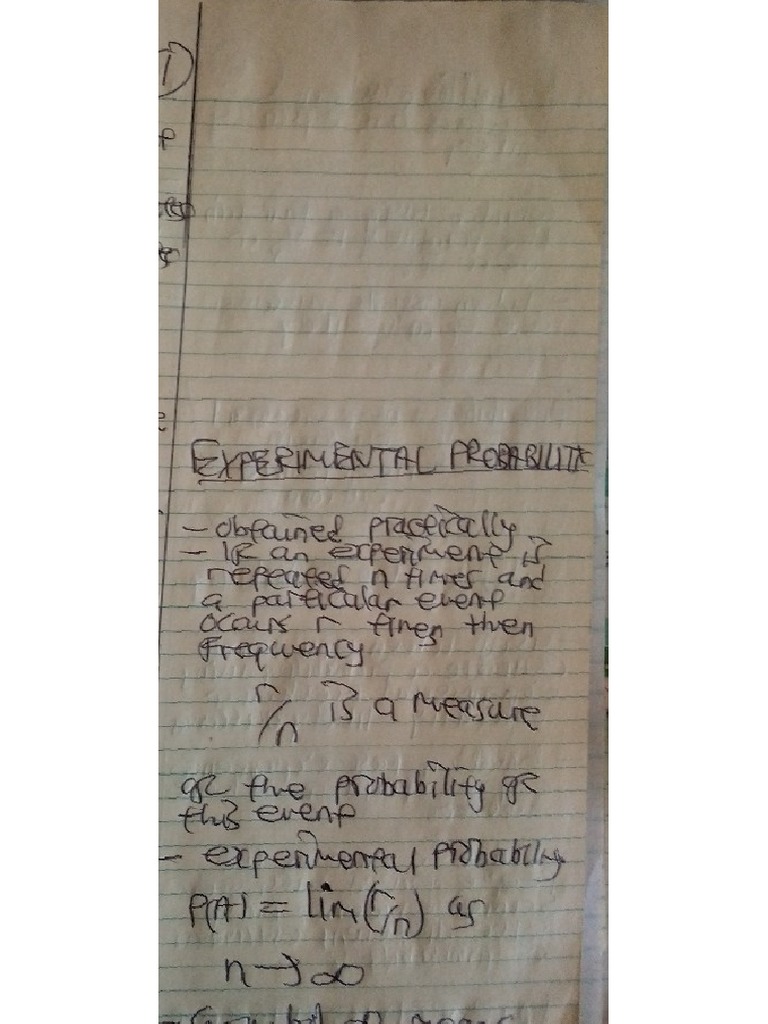 EXPERIMENTAL PROBABILITY
- obtained practically
- If an experiment is
repeated n times and
a particular event
occurs r times then
frequency
r/n is a measure
of the probability of
this event
- experimental probability
P(A) = lim(r/n) as
n → ∞